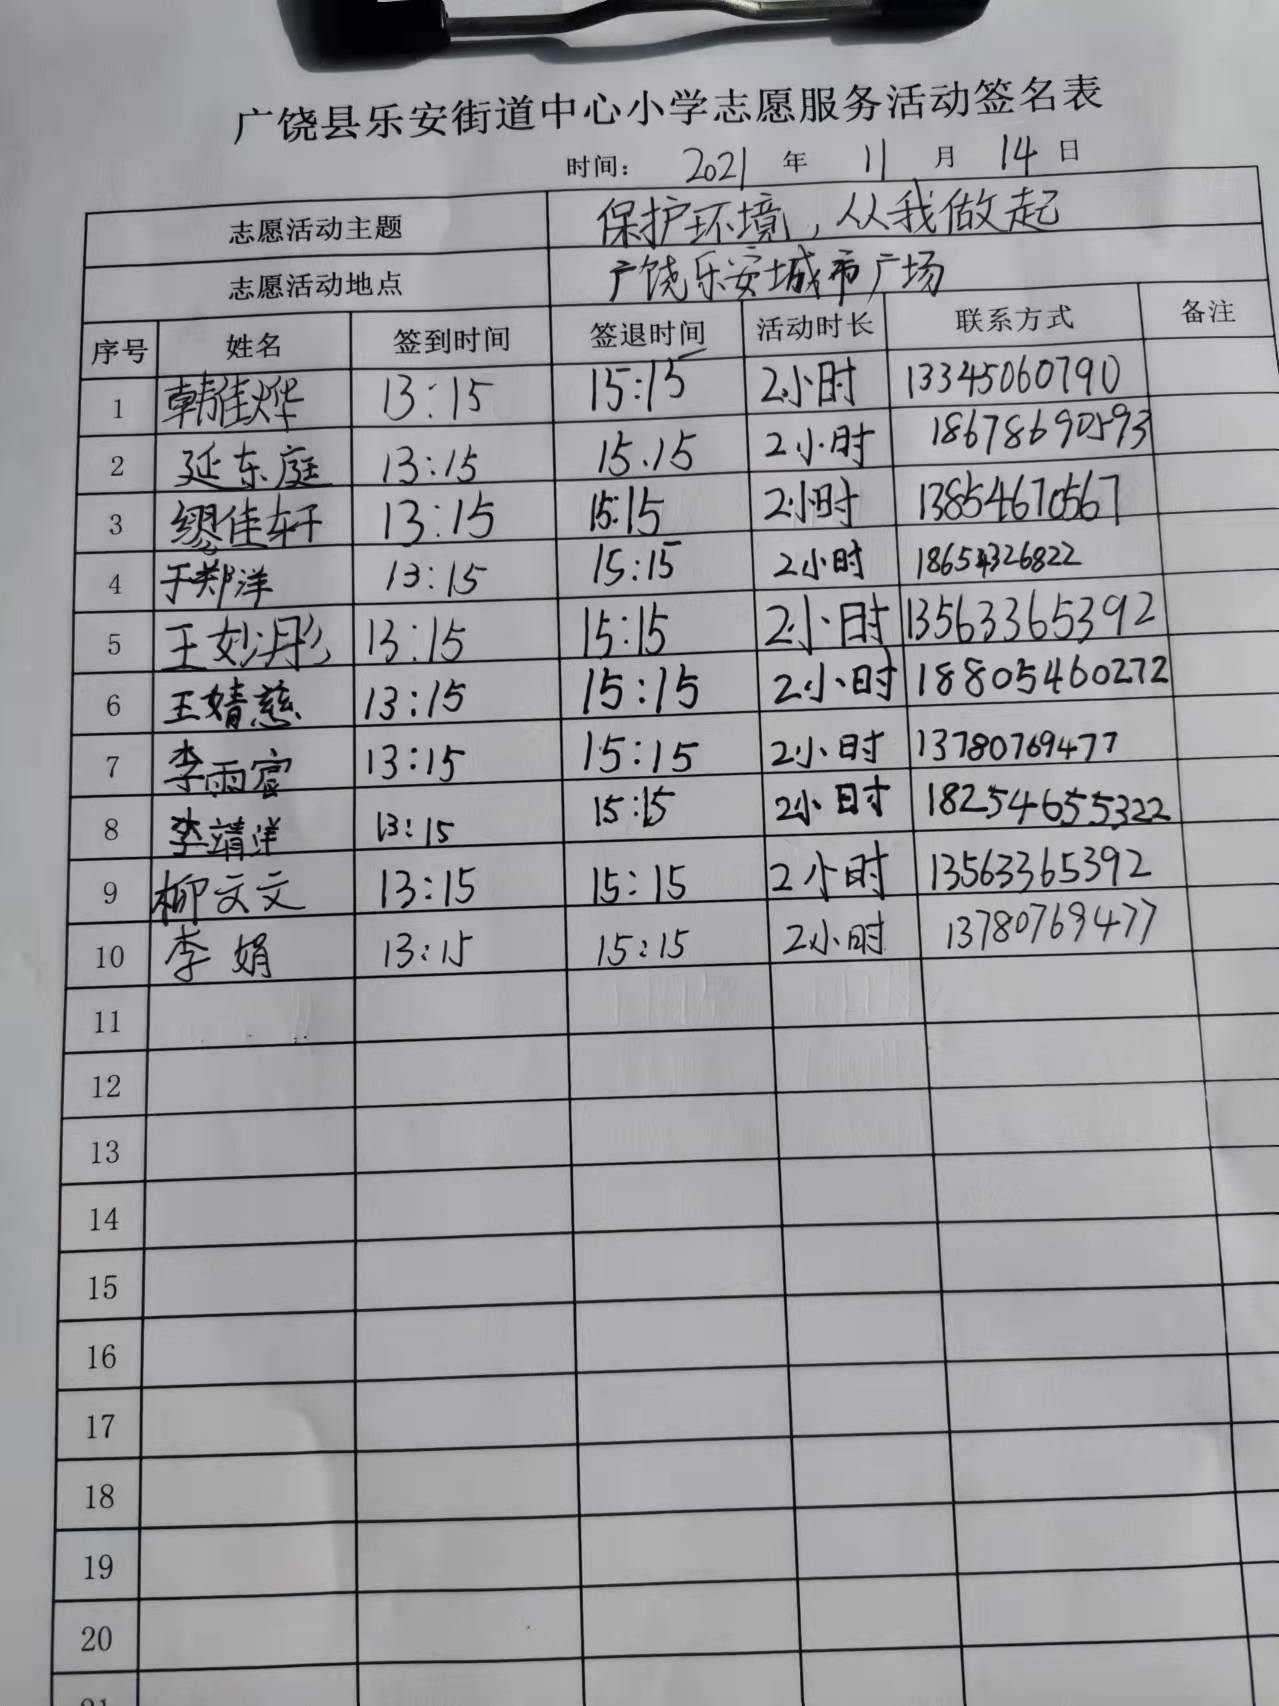 广饶县乐安街道中心小学志愿服务活动签名表
时间： 2021 年 11 月 14 日
志愿活动主题 保护环境，从我做起
志愿活动地点 广饶乐安城市广场
序号 姓名 签到时间 签退时间 活动时长 联系方式 备注
1 韩佳烨 13:15 15:15 2小时 13345060790
2 延东庭 13:15 15.15 2小时 18678690593
3 缪佳轩 13:15 15:15 2小时 13854670567
4 于郑洋 13:15 15:15 2小时 18654326822
5 王妙彤 13:15 15:15 2小时 13563365392
6 王婧慈 13:15 15:15 2小时 18805460272
7 李雨宸 13:15 15:15 2小时 13780769477
8 李靖洋 13:15 15:15 2小时 18254655322
9 柳文文 13:15 15:15 2小时 13563365392
10 李娟 13:15 15:15 2小时 13780769477
11
12
13
14
15
16
17
18
19
20